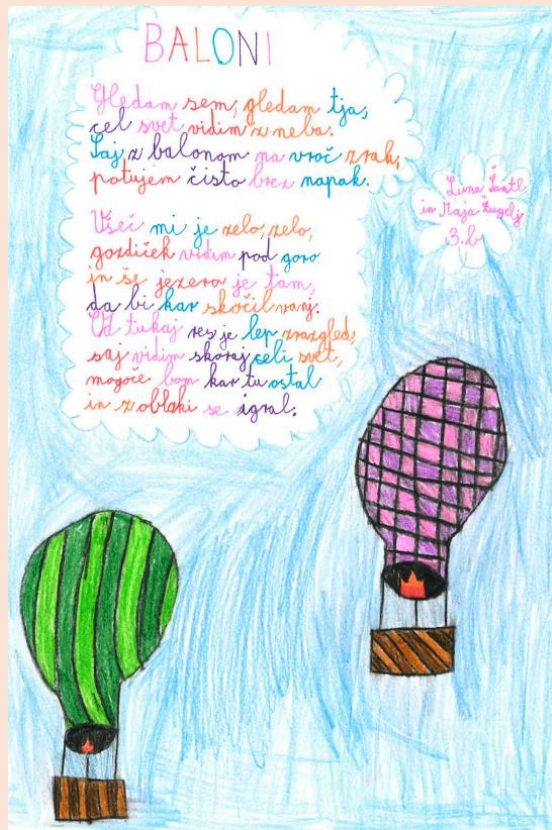 BALONI
Gledam sem, gledam tja,
cel svet vidim z neba.
Saj z balonom na vroč zrak,
potujem čisto brez napak.
Všeč mi je zelo, zelo,
gozdiček vidim pod goro
in še jezero je tam,
da bi kar skočil vanj.
Od tukaj res je lep zrazgled,
saj vidim skoraj celi svet,
mogoče bom kar tu ostal
in z oblaki se igral.
Luna Šantl
in Maja Žugelj
3. b